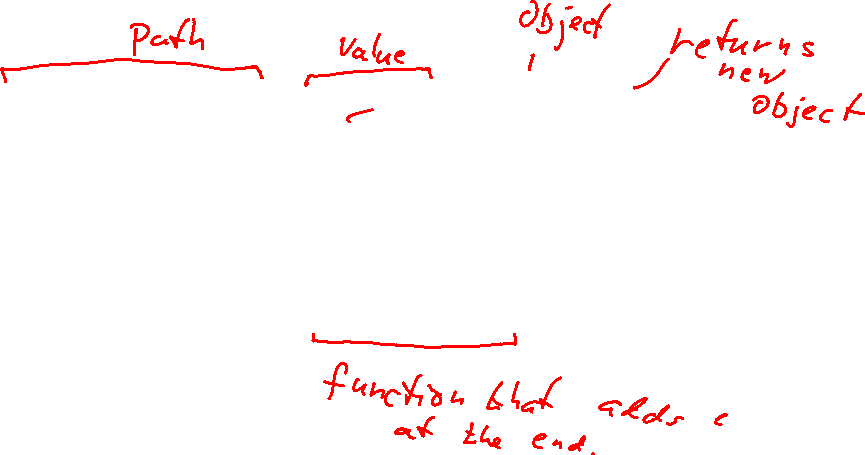 Path
Value
Object
returns
new
Object
function that adds c
at the end.